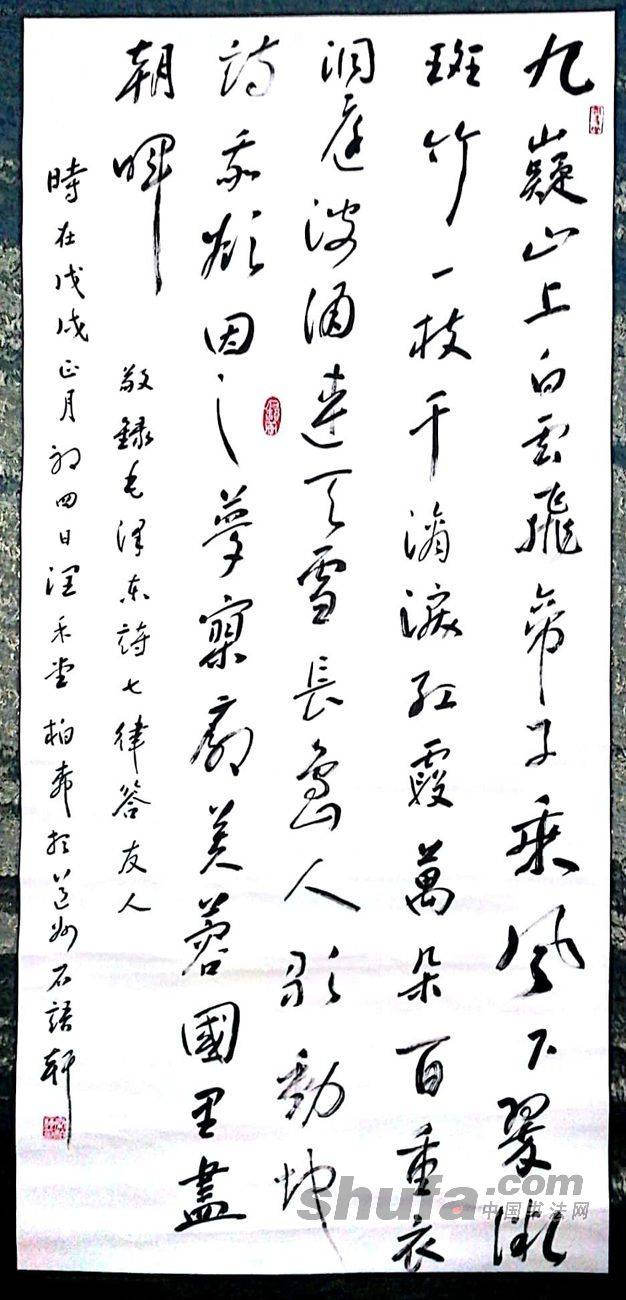 九嶷山上白雲飛帝子乘風下翠微
斑竹一枝千滴淚紅霞萬朵百重衣
洞庭波涌連天雪長島人歌動地
詩我欲因之夢寥廓芙蓉國里盡
朝暉
敬錄毛澤東詩七律答友人
時在戊戌正月初四日潤禾堂柏森於道州石語軒
shufa.com
中国书法网